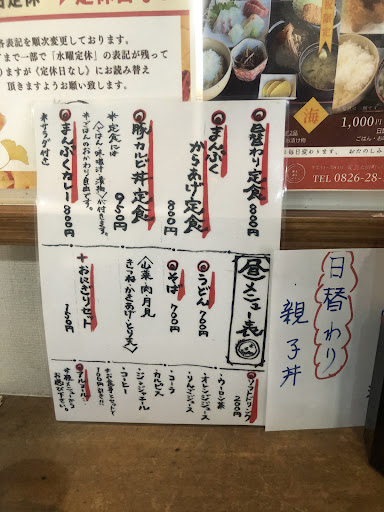 各表記を順次変更しております。
まで一部で「水曜定休」の表記が残って
りますが〈定休日なし〉にお読み替え
頂きますようお願い致します。
海
1,000円
毎日変わります。
TEL 0826-28-
昼メニュー表
日替わり定食 800円
まんぷく
からあげ定食 800円
豚カルビ丼定食 950円
*定食には
〈ごはん・味噌汁・漬物〉が付きます。
*ごはんのおかわり自由です。
まんぷくカレー 800円
*サラダ付き
うどん 700円
そば 700円
〈山菜・肉・月見
きつね・かきあげ・とり天〉
+おにぎりセット 150円
ソフトドリンク 200円
・ウーロン茶
・オレンジジュース
・りんごジュース
・コーラ
・カルピス
・ジンジャエール
・コーヒー
*お食事とセットで
100円引き!!
アルコール
*種メニューから
お選び下さい。
日替わり
親子丼